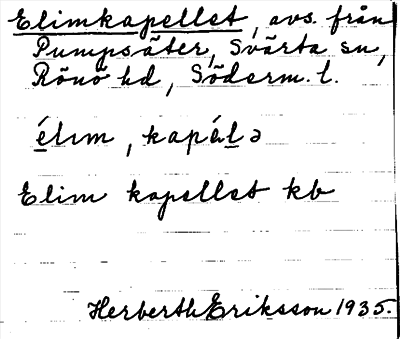 Elimkapellet, avs. från
Pumpsäter, Svärta sn,
Rönö hd, Söderm. l.
élım, kapál ə
Elim kapellet kb
Herberth Eriksson 1935.